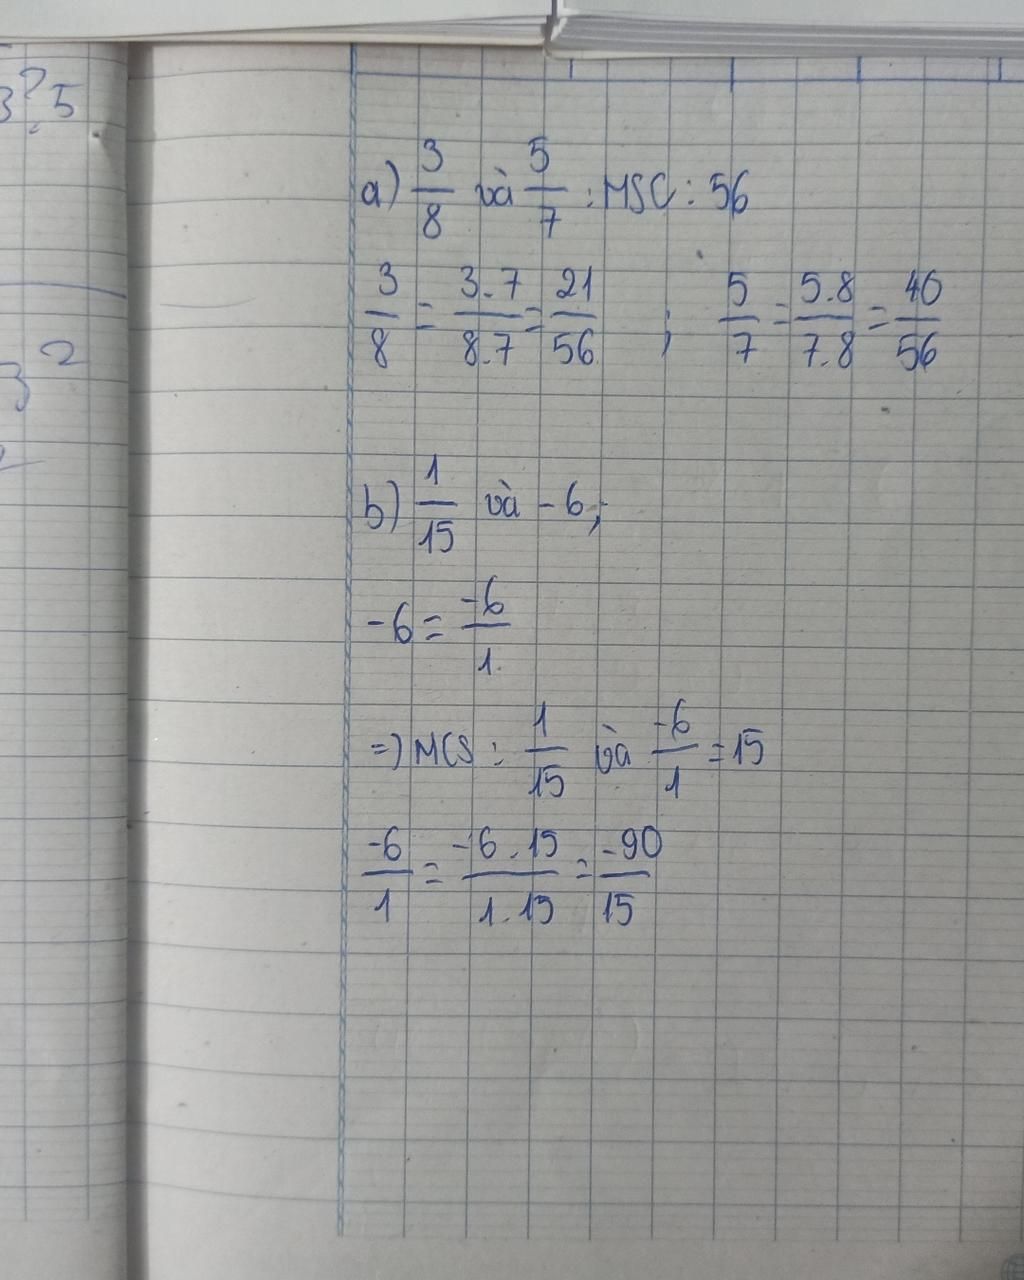 3?5
3²
a) 3/8 và 5/7 : MSC : 56
3/8 = 3.7/8.7 = 21/56 ; 5/7 = 5.8/7.8 = 40/56
b) 1/15 và -6;
-6 = -6/1
=) MCS : 1/15 và -6/1 = 15
-6/1 = -6.15/1.15 = -90/15